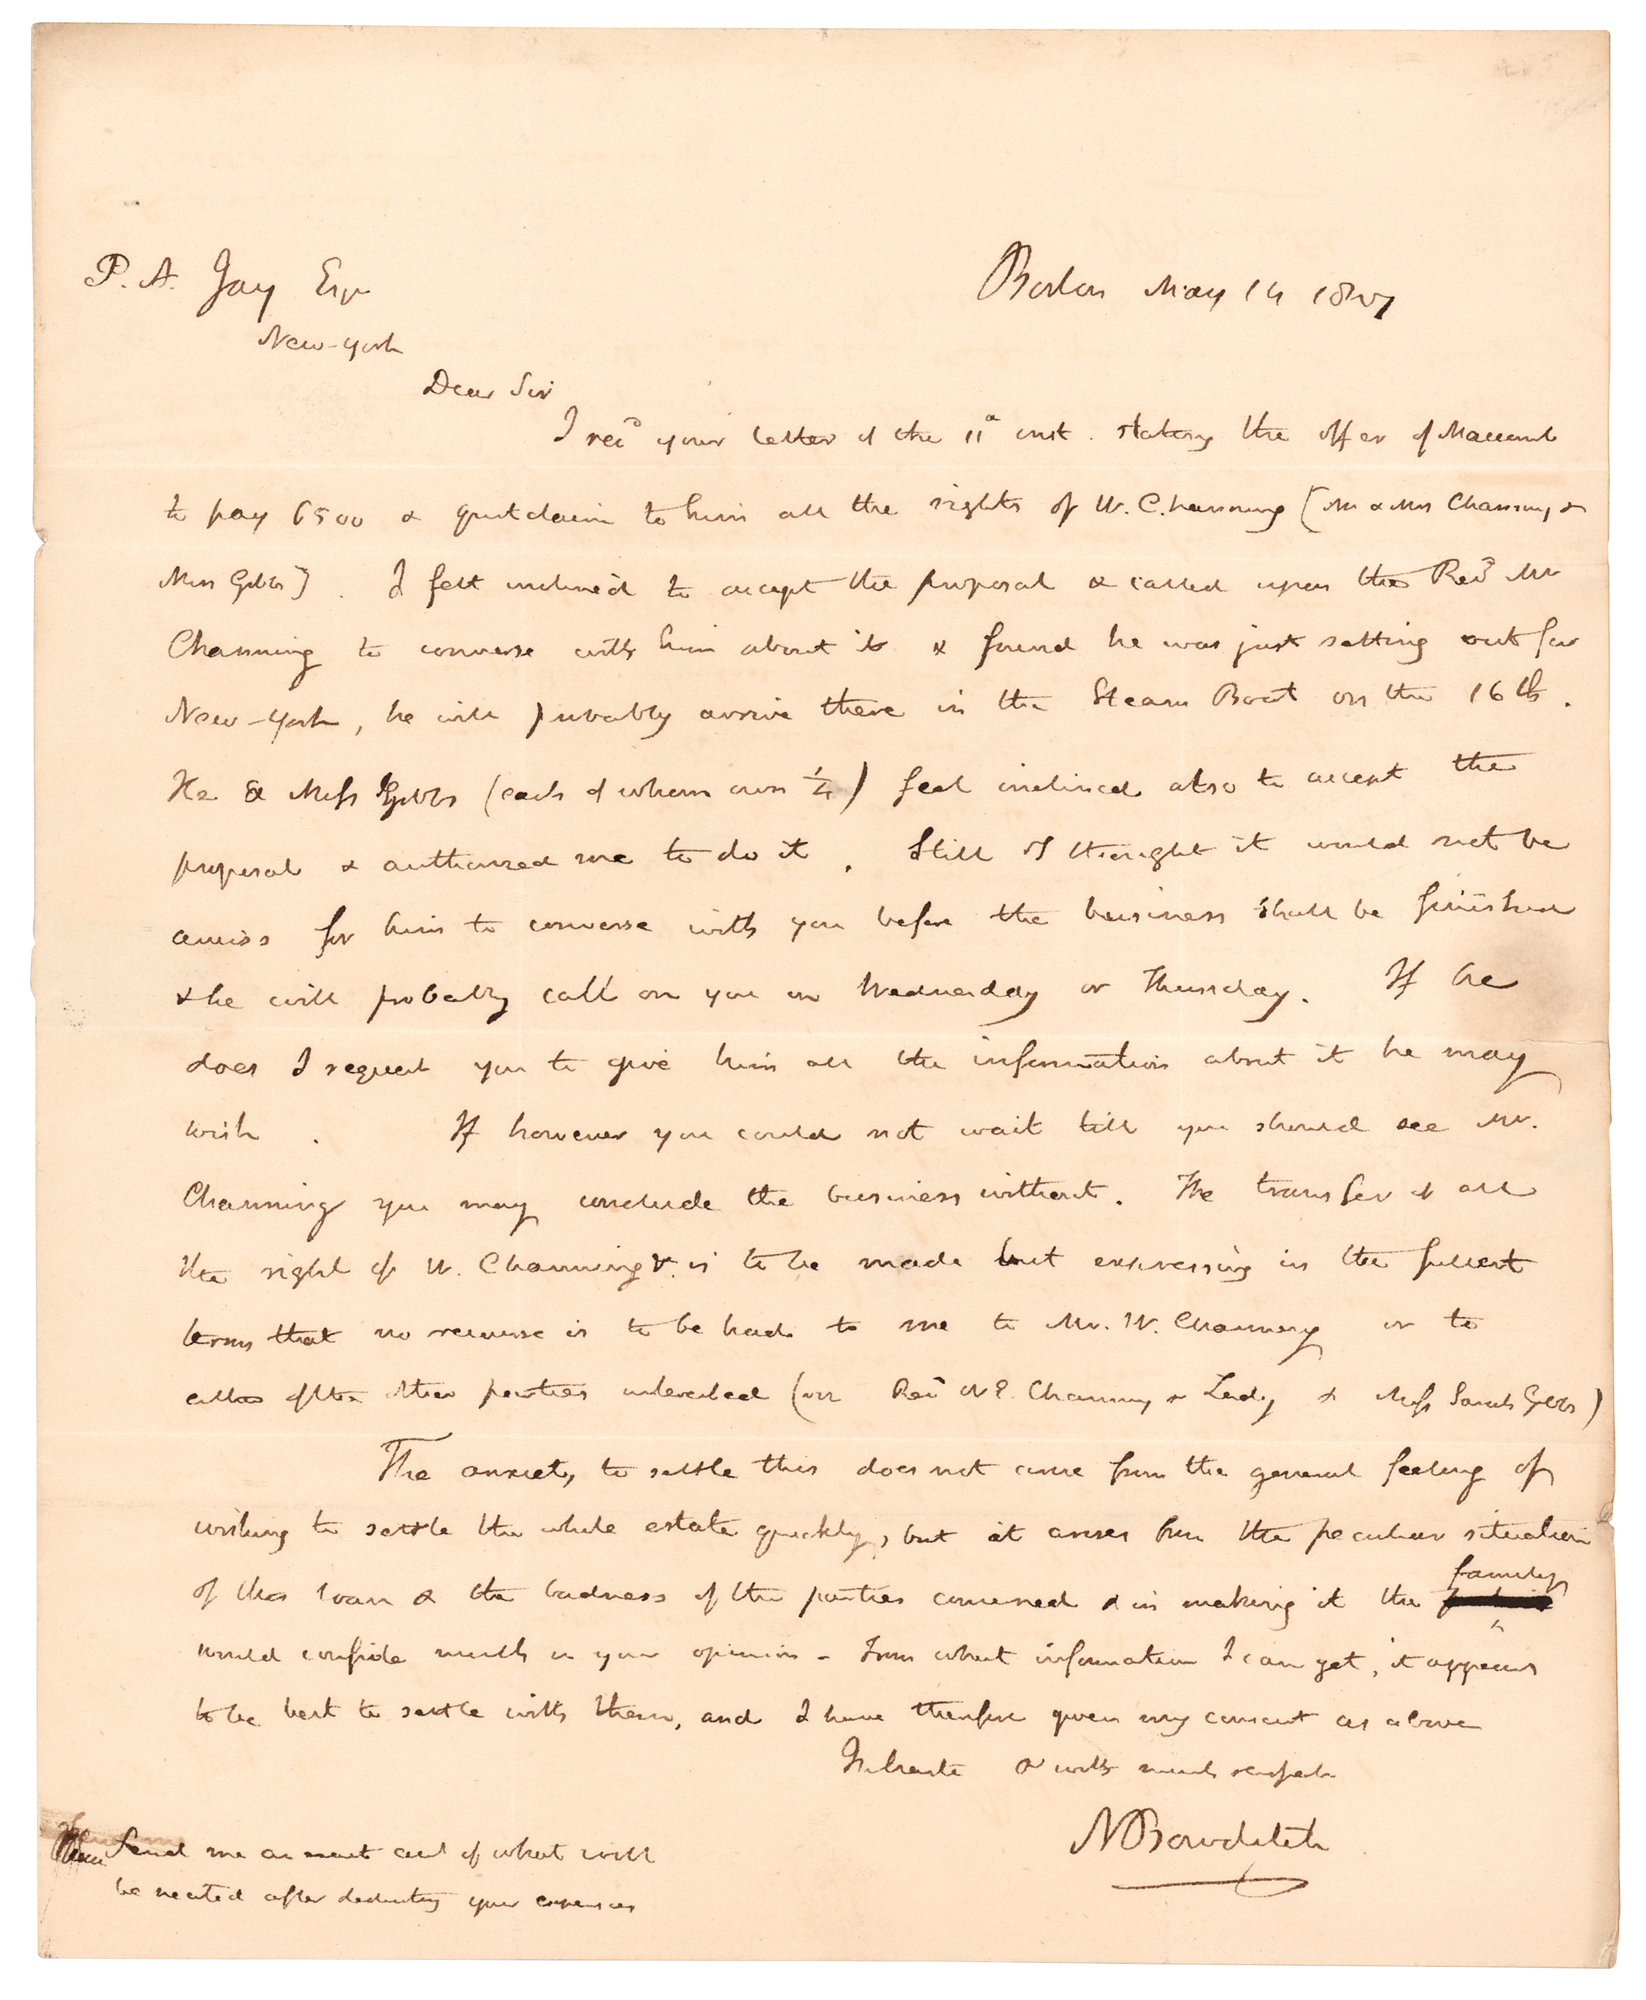 P. A. Jay Esqr
New-York
Boston May 14 1827
Dear Sir
I recd your letter of the 11th inst. stating the offer of Maccomb
to pay 6500 & quitclaim to him all the rights of W. Channing [Mr & Mrs Channing &
Miss Gibbs]. I felt inclined to accept the proposal & called upon the Revd Mr
Channing to converse with him about it & found he was just setting out for
New-York, he will probably arrive there in the Steam Boat on the 16th.
He & Miss Gibbs (each of whom own 1/4) feel inclined also to accept the
proposal & authorized me to do it. Still I thought it would not be
amiss for him to converse with you before the business shall be finished
& he will probably call on you on Wednesday or Thursday. If he
does I request you to give him all the information about it he may
wish. If however you could not wait till you should see Mr.
Channing you may conclude the business without. The transfer of all
the right of W. Channing &c. is to be made but expressing in the fullest
terms that no recourse is to be had to me to Mr. W. Channing or to
either of the other parties interested (viz Revd W E. Channing & Lady & Miss Sarah Gibbs)
The anxiety to settle this does not come from the general feeling of
wishing to settle the whole estate quickly, but it arises from the peculiar situation
of this loan & the badness of the parties concerned & in making it the family
would confide much in your opinion - From what information I can get, it appears
to be best to settle with them, and I have therefore given my consent as above
In haste & with much respect
N Bowditch
Send me an exact acct of what will
be received after deducting your expenses